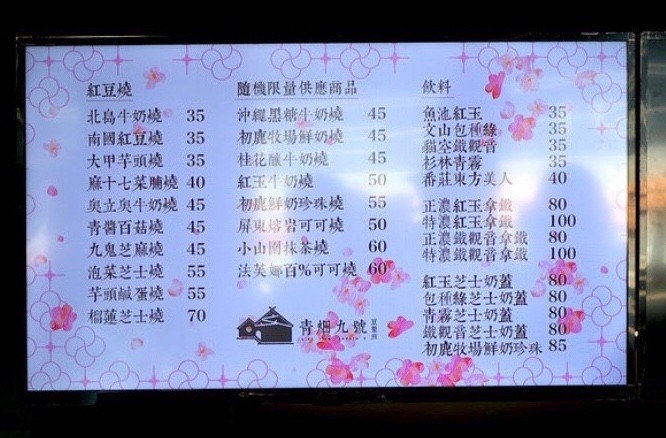 紅豆燒
北島牛奶燒 35
南國紅豆燒 35
大甲芋頭燒 35
麻十七菜脯燒 40
奧立奧牛奶燒 45
青醬百菇燒 45
九鬼芝麻燒 45
泡菜芝士燒 55
芋頭鹹蛋燒 55
榴蓮芝士燒 70
隨機限量供應商品
沖繩黑糖牛奶燒 45
初鹿牧場鮮奶燒 45
桂花釀牛奶燒 50
紅玉牛奶燒 50
初鹿鮮奶珍珠燒 55
屏東熔岩可可燒 50
小山園抹茶燒 60
法芙娜百%可可燒 60
青畑九號
豆製所
飲料
魚池紅玉 35
文山包種綠 35
貓空鐵觀音 35
杉林青霧 35
番莊東方美人 40
正濃紅玉拿鐵 80
特濃紅玉拿鐵 100
正濃鐵觀音拿鐵 80
特濃鐵觀音拿鐵 100
紅玉芝士奶蓋 80
包種綠芝士奶蓋 80
青霧芝士奶蓋 80
鐵觀音芝士奶蓋 80
初鹿牧場鮮奶珍珠 85